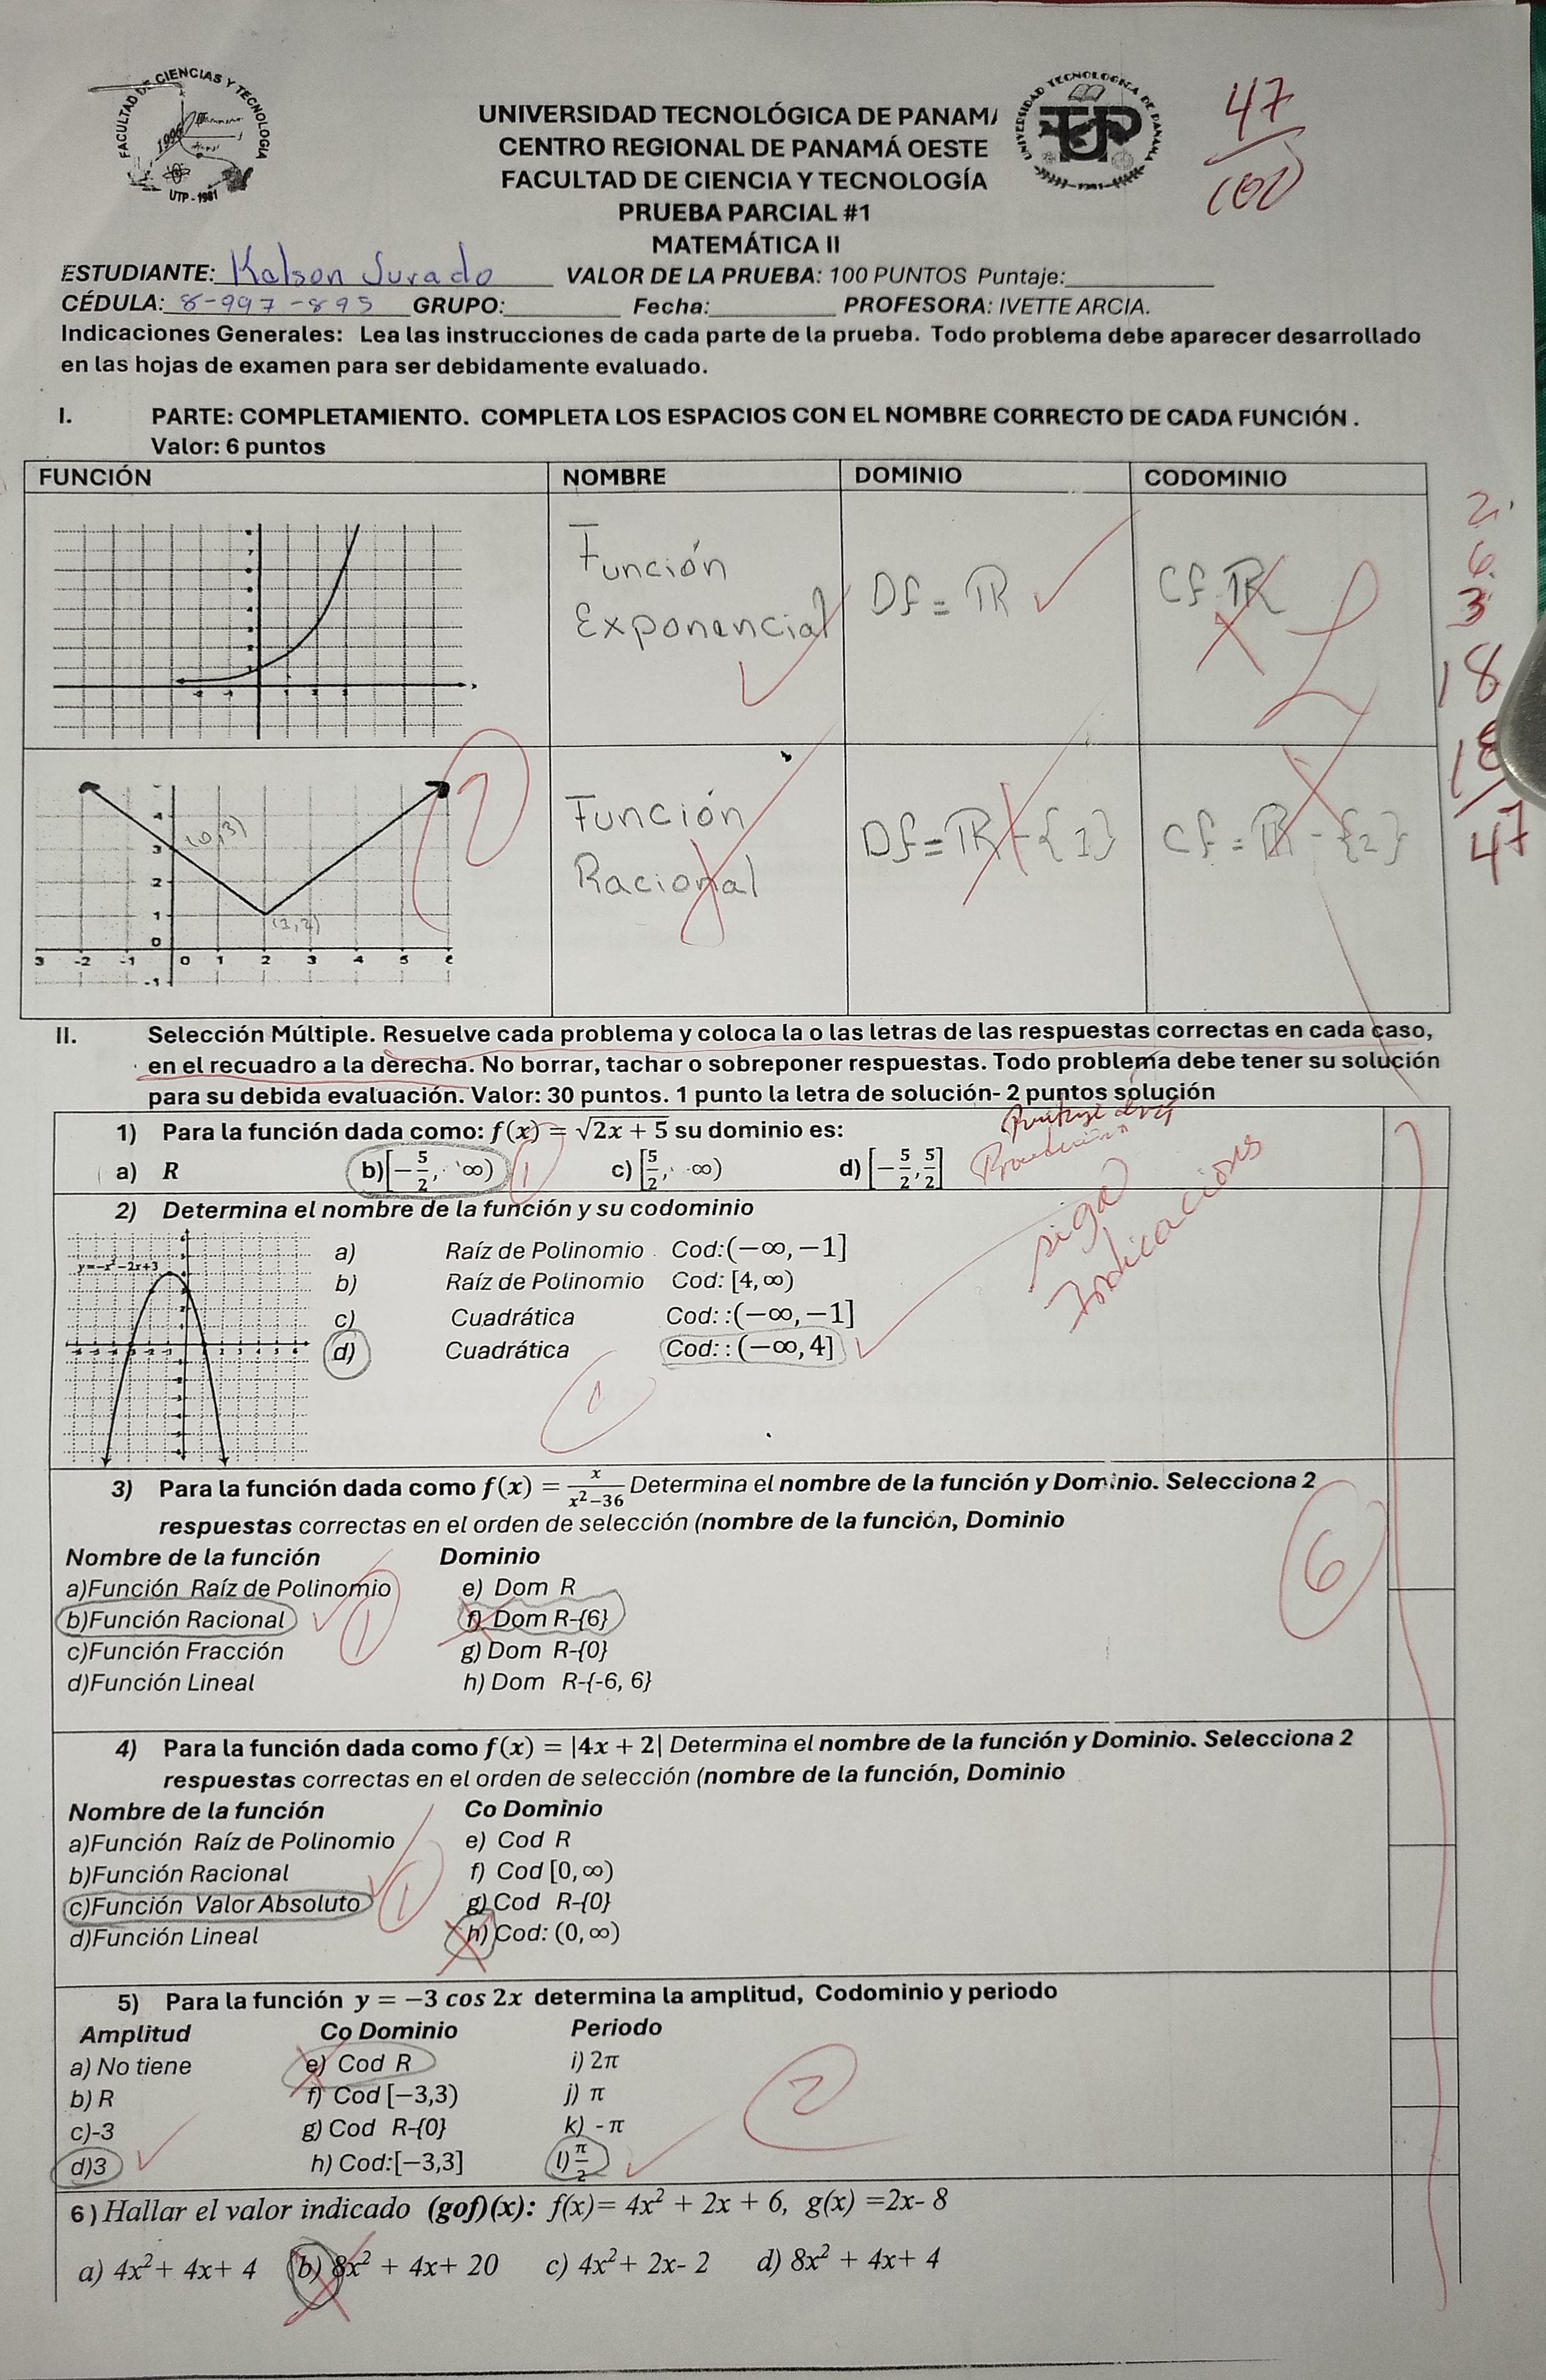 FACULTAD DE CIENCIAS Y TECNOLOGÍA
UTP - 1981
UNIVERSIDAD TECNOLÓGICA DE PANAM
CENTRO REGIONAL DE PANAMÁ OESTE
FACULTAD DE CIENCIA Y TECNOLOGÍA
PRUEBA PARCIAL #1
MATEMÁTICA II
UNIVERSIDAD TECNOLOGICA DE PANAMA
UTP
47
100
ESTUDIANTE: Kelson Jurado VALOR DE LA PRUEBA: 100 PUNTOS Puntaje:
CÉDULA: 8-997-895 GRUPO: Fecha: PROFESORA: IVETTE ARCIA.
Indicaciones Generales: Lea las instrucciones de cada parte de la prueba. Todo problema debe aparecer desarrollado
en las hojas de examen para ser debidamente evaluado.
I. PARTE: COMPLETAMIENTO. COMPLETA LOS ESPACIOS CON EL NOMBRE CORRECTO DE CADA FUNCIÓN .
Valor: 6 puntos
FUNCIÓN NOMBRE DOMINIO CODOMINIO
Función
Exponencial
Df = ℝ
Cf ℝ
2
6
3
18
18
47
2
(0,3)
(1,2)
4
3
2
1
0
3 -2 -1 0 1 2 3 4 5
-1
Función
Racional
Df = ℝ - {1}
Cf = ℝ - {2}
II. Selección Múltiple. Resuelve cada problema y coloca la o las letras de las respuestas correctas en cada caso,
en el recuadro a la derecha. No borrar, tachar o sobreponer respuestas. Todo problema debe tener su solución
para su debida evaluación. Valor: 30 puntos. 1 punto la letra de solución- 2 puntos solución
1) Para la función dada como: f(x) = √2x + 5 su dominio es:
a) R b)[-5/2, ∞) c) [5/2, ∞) d) [-5/2, 5/2]
1
siga
Indicaciones
2) Determina el nombre de la función y su codominio
y=-x²-2x+3
a) Raíz de Polinomio Cod:(-∞, -1]
b) Raíz de Polinomio Cod: [4, ∞)
c) Cuadrática Cod: :(-∞, -1]
d) Cuadrática Cod: : (-∞, 4]
1
3) Para la función dada como f(x) = x/(x²-36) Determina el nombre de la función y Dominio. Selecciona 2
respuestas correctas en el orden de selección (nombre de la función, Dominio
Nombre de la función Dominio
a)Función Raíz de Polinomio e) Dom R
b)Función Racional f) Dom R-{6}
c)Función Fracción g) Dom R-{0}
d)Función Lineal h) Dom R-{-6, 6}
1
6
4) Para la función dada como f(x) = |4x + 2| Determina el nombre de la función y Dominio. Selecciona 2
respuestas correctas en el orden de selección (nombre de la función, Dominio
Nombre de la función Co Dominio
a)Función Raíz de Polinomio e) Cod R
b)Función Racional f) Cod [0, ∞)
c)Función Valor Absoluto g) Cod R-{0}
d)Función Lineal h) Cod: (0, ∞)
1
5) Para la función y = -3 cos 2x determina la amplitud, Codominio y periodo
Amplitud Co Dominio Periodo
a) No tiene e) Cod R i) 2π
b) R f) Cod [-3,3) j) π
c)-3 g) Cod R-{0} k) -π
d)3 h) Cod:[-3,3] l) π/2
2
6) Hallar el valor indicado (gof)(x): f(x)= 4x² + 2x + 6, g(x) =2x- 8
a) 4x²+ 4x+ 4 b) 8x² + 4x+ 20 c) 4x²+ 2x- 2 d) 8x² + 4x+ 4